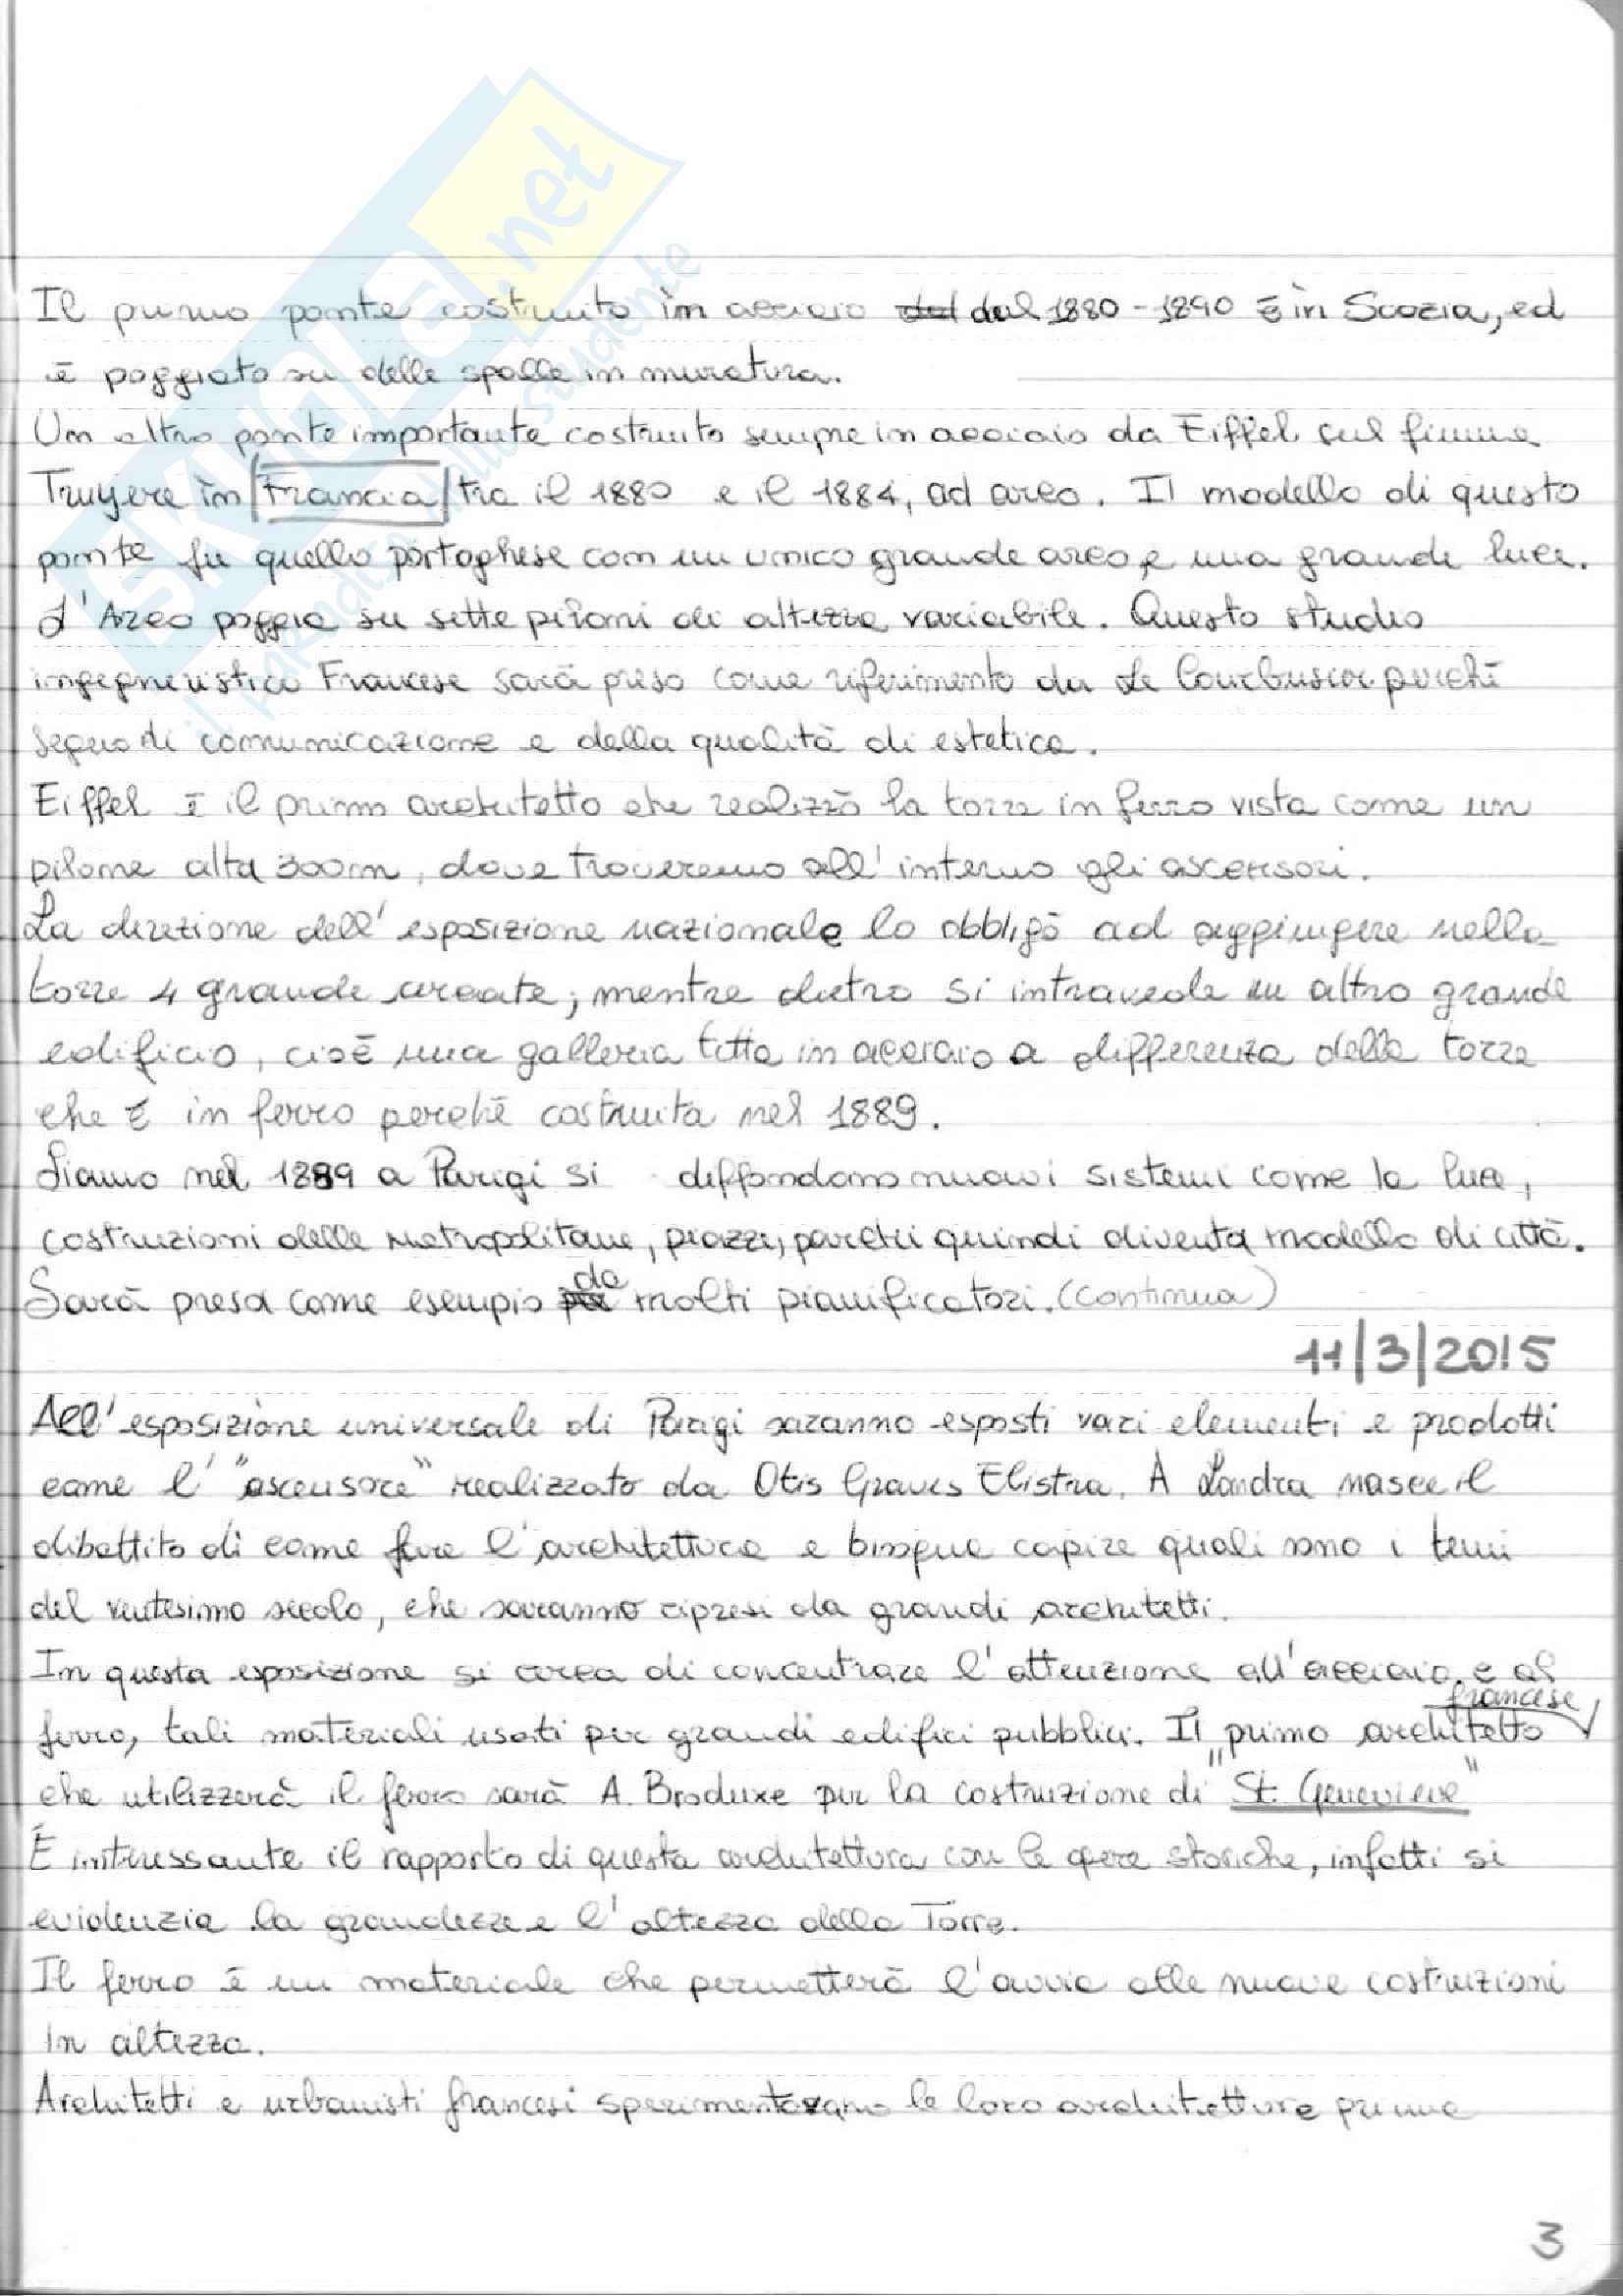 SKUOLA.net
il paradiso dello studente
Il primo ponte costruito in acciaio del dal 1880-1890 è in Scozia, ed
è poggiato su delle spalle in muratura.
Un altro ponte importante costruito sempre in acciaio da Eiffel sul fiume
Truyere in Francia tra il 1880 e il 1884, ad arco. Il modello di questo
ponte fu quello portoghese con un unico grande arco e una grande luce.
L'Arco poggia su sette piloni di altezza variabile. Questo studio
ingegneristico Francese sarà preso come riferimento da Le Courbusier perché
segno di comunicazione e della qualità di estetica.
Eiffel è il primo architetto che realizzò la torre in ferro vista come un
pilone alta 300m, dove troveremo all'interno gli ascensori.
La direzione dell'esposizione nazionale lo obbligò ad aggiungere nella
torre 4 grande arcate; mentre dietro si intravede un altro grande
edificio, cioè una galleria tutta in acciaio a differenza della torre
che è in ferro perché costruita nel 1889.
Siamo nel 1889 a Parigi si diffondono nuovi sistemi come la luce,
costruzioni delle metropolitane, piazze, parchi quindi diventa modello di città.
Sarà presa come esempio da molti pianificatori. (continua)
11/3/2015
All'esposizione universale di Parigi saranno esposti vari elementi e prodotti
come l'"ascensore" realizzato da Otis Graves Elistra. A Londra nasce il
dibattito di come fare l'architettura e bisogna capire quali sono i temi
del ventesimo secolo, che saranno ripresi da grandi architetti.
In questa esposizione si cerca di concentrare l'attenzione all'acciaio e al
ferro, tali materiali usati per grandi edifici pubblici. Il primo architetto francese
che utilizzerà il ferro sarà A. Broduxe per la costruzione di "St. Genevieve"
È interessante il rapporto di questa architettura con le opere storiche, infatti si
evidenzia la grandezza e l'altezza della Torre.
Il ferro è un materiale che permetterà l'avvio alle nuove costruzioni
in altezza.
Architetti e urbanisti francesi sperimentarano le loro architetture prima
3